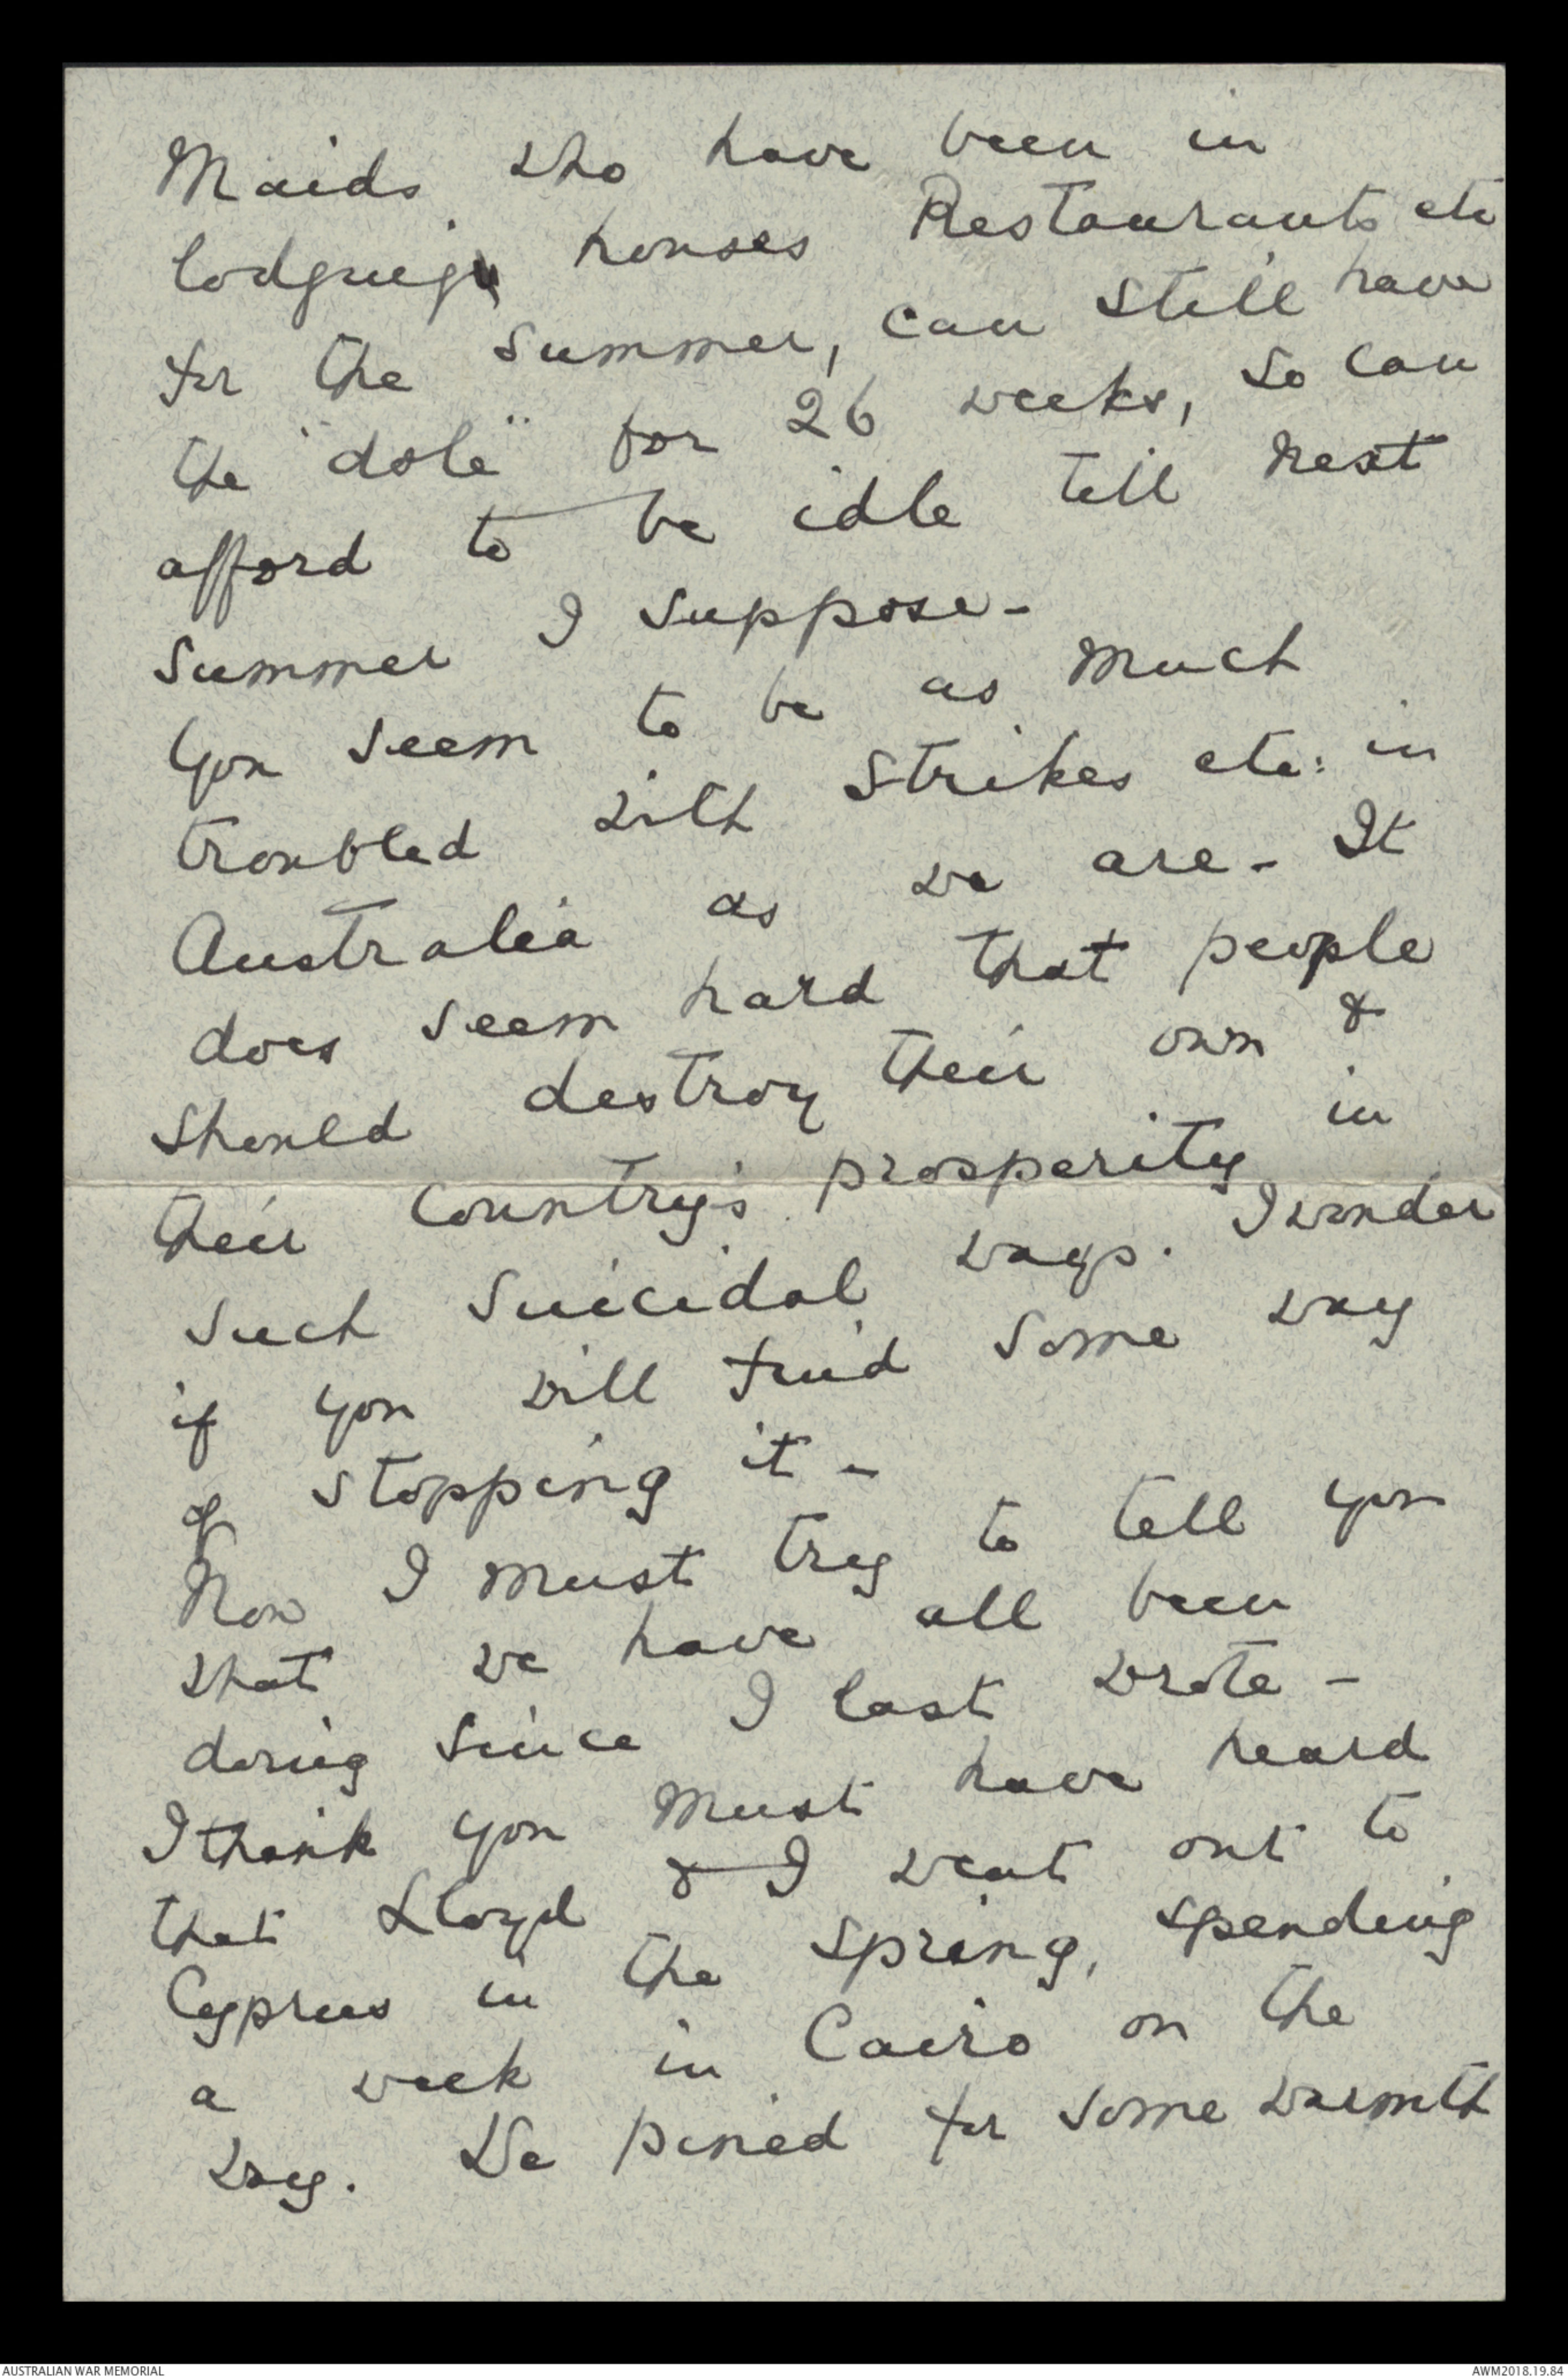 Maids who have been in
lodging houses Restaurants etc
for the summer, can still have
the "dole" for 26 weeks, so can
afford to be idle till next
summer I suppose -
You seem to be as much
troubled with strikes etc: in
Australia as we are - It
does seem hard that people
should destroy their own &
their country's prosperity in
such suicidal ways. I wonder
if you will find some way
of stopping it -
Now I must try to tell you
what we have all been
doing since I last wrote -
I think you must have heard
that Lloyd & I went out to
Cyprus in the spring, spending
a week in Cairo on the
way. We pined for some warmth
AUSTRALIAN WAR MEMORIAL
AWM2018.19.84